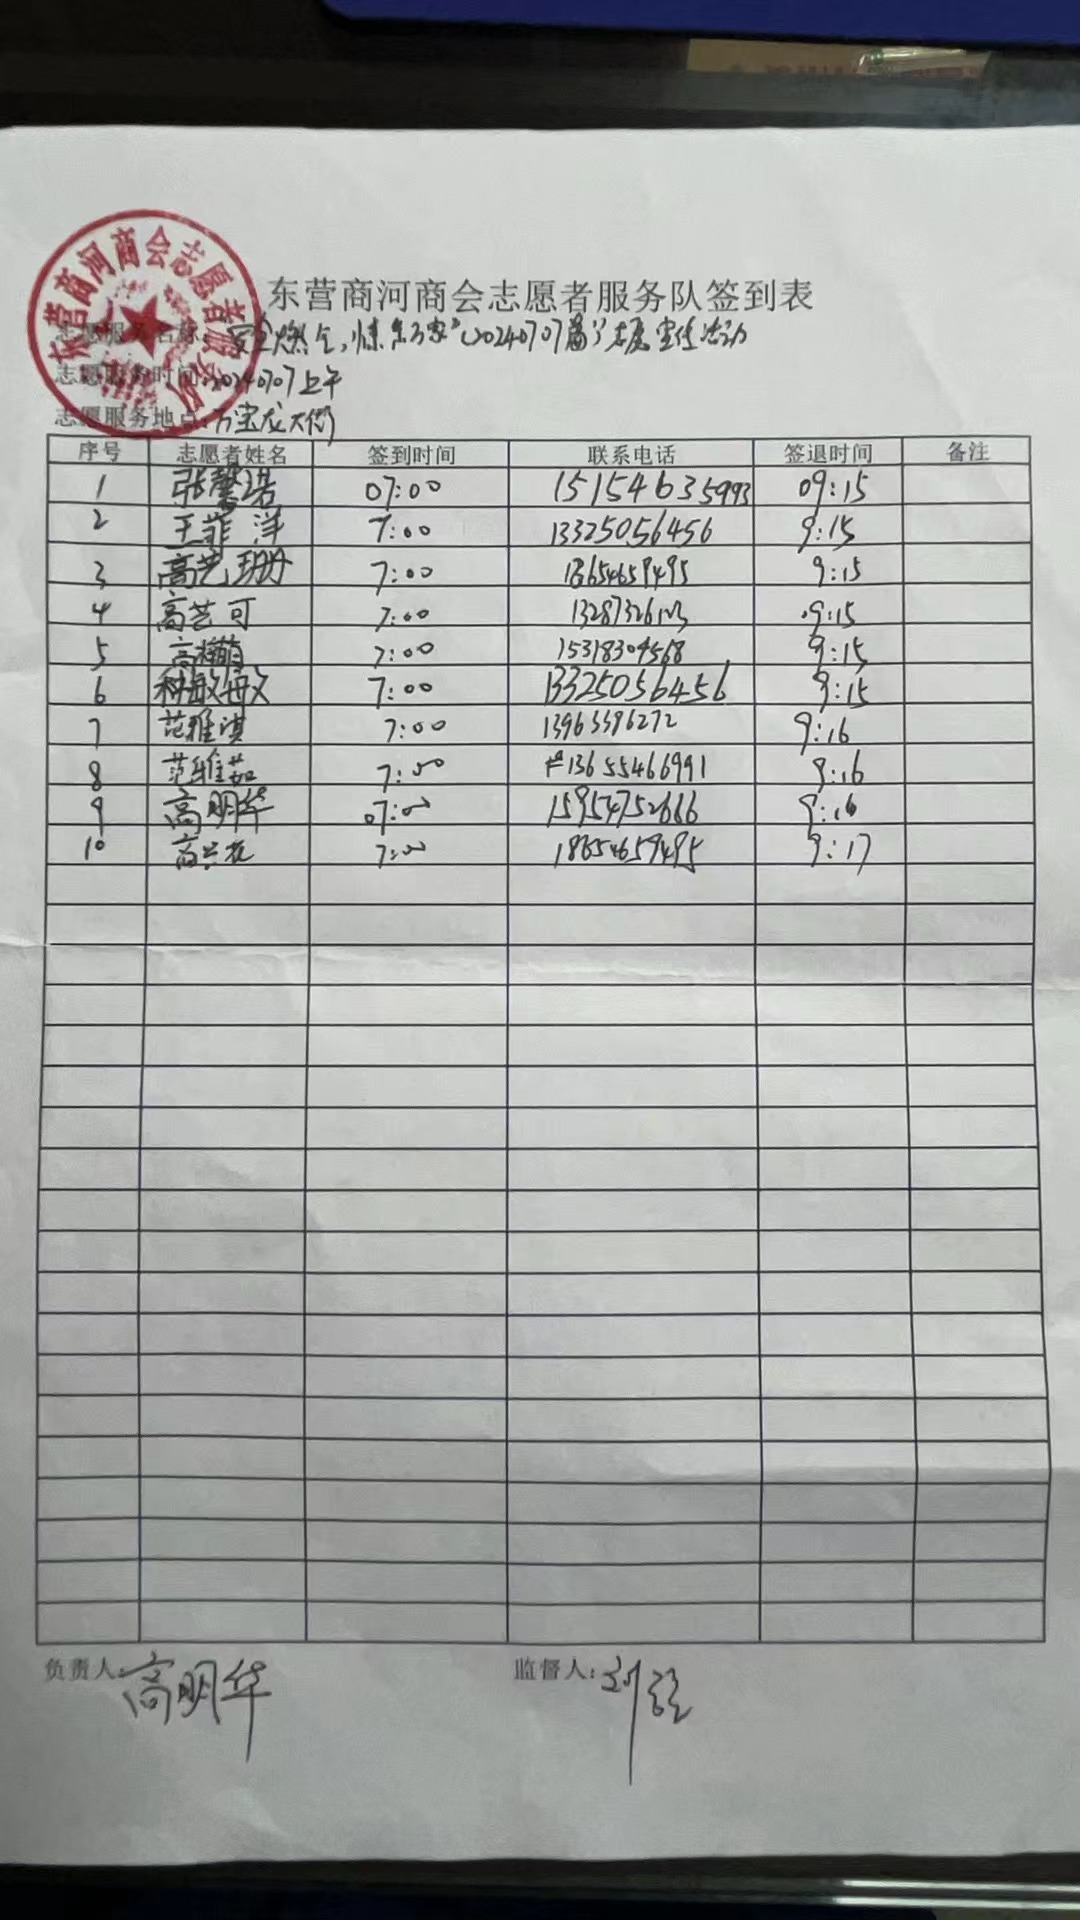 东营商河商会志愿者服务队
东营商河商会志愿者服务队签到表
志愿服务名称: 安全燃气,惊东万家"(20240707篇)志愿宣传活动
志愿服务时间: 20240707上午
志愿服务地点: 万宝龙大街
序号 志愿者姓名 签到时间 联系电话 签退时间 备注
1 张馨诺 07:00 15154635993 09:15
2 王菲洋 7:00 13325056456 9:15
3 高艺珊 7:00 18654659495 9:15
4 高艺可 7:00 9:15
5 7:00 15318304568 9:15
6 种敏敏 7:00 13325056456 9:15
7 范雅淇 7:00 13963396272 9:16
8 范雅茹 7:00 13655466991 9:16
9 高明华 07:00 15954752666 9:16
10 高兰花 7:00 18654659495 9:17
负责人: 高明华 监督人: 刘